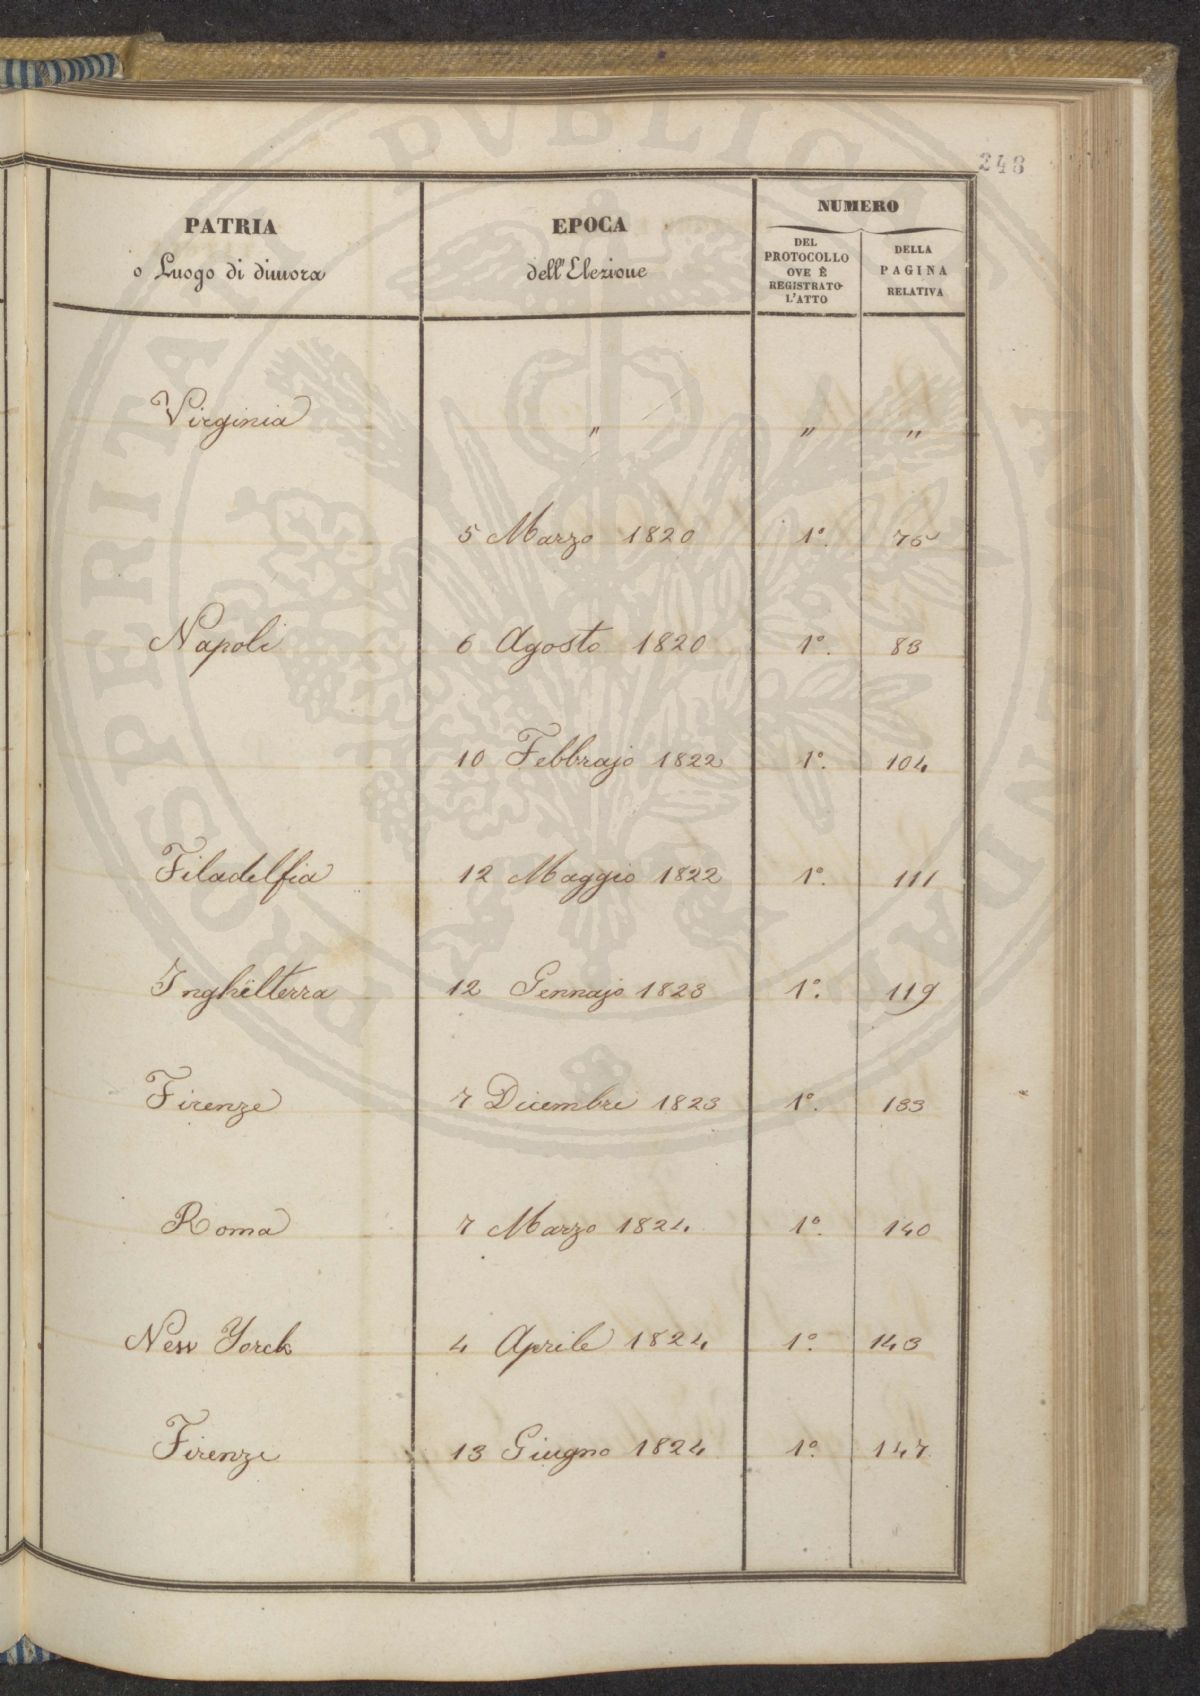 248
PATRIA
o Luogo di dimora
EPOCA
dell'Elezione
NUMERO
DEL
PROTOCOLLO
OVE È
REGISTRATO
L'ATTO
DELLA
PAGINA
RELATIVA
Virginia " " "
5 Marzo 1820 1º. 75
Napoli 6 Agosto 1820 1º. 83
10 Febbrajo 1822 1º. 104
Filadelfia 12 Maggio 1822 1º. 111
Inghilterra 12 Gennajo 1823 1º. 119
Firenze 7 Dicembre 1823 1º. 133
Roma 7 Marzo 1824 1º. 140
New Yorck 4 Aprile 1824 1º. 143
Firenze 13 Giugno 1824 1º. 147
PROSPERITATI PVBLICAE AVGENDAE